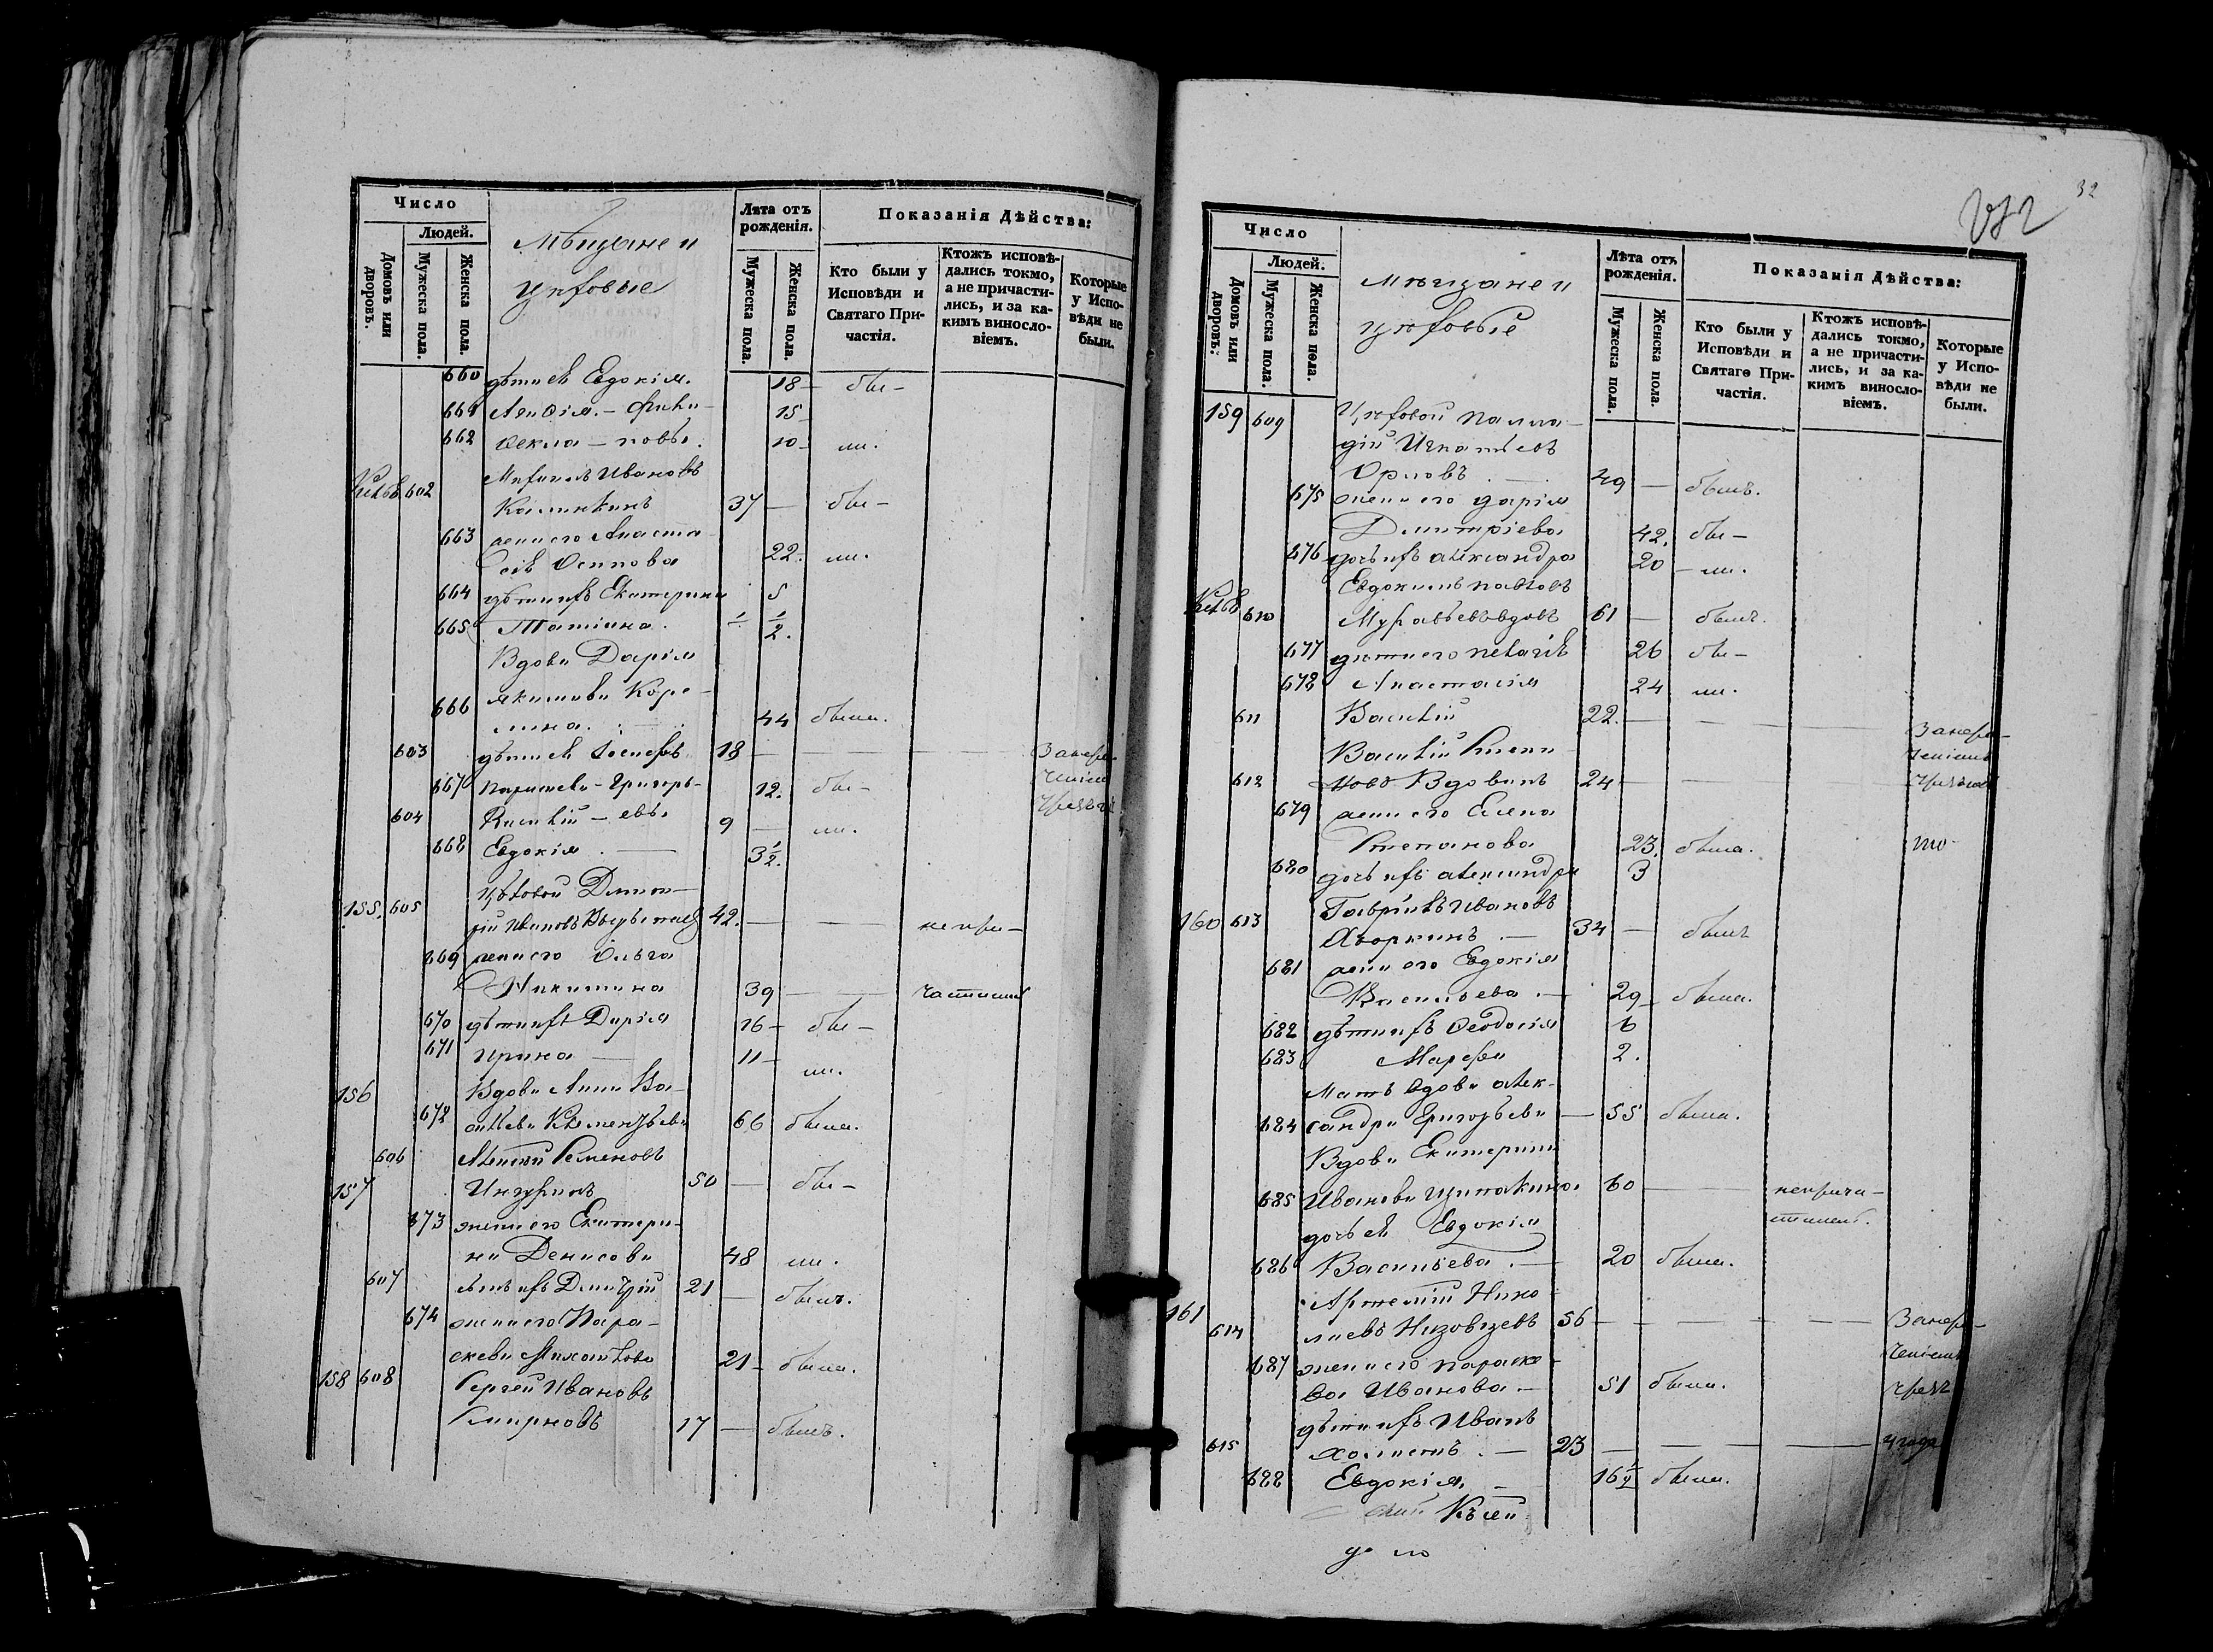 Число
Людей.
Домовъ или дворовъ.
Мужеска пола.
Женска пола.
Мѣщане и
цеховые
Лѣта отъ рожденія.
Мужеска пола.
Женска пола.
Показанія Дѣйства:
Кто были у Исповѣди и Святаго Причастія.
Ктожъ исповѣдались токмо, а не причастились, и за какимъ винословіемъ.
Которые у Исповѣди не были.
660 дѣти ея Евдокія. 18 — бы —
661 15
662 Ѳекла 10 — ли.
Ивановъ
602 Калинкинъ 37 — бы —
663 жена его Анаста
сія Осипова 22. ли.
664 дѣти ихъ Екатерина 5
665 Татіана. 1/2.
Вдова Дарія
666 Якимова Коре-
лина. 44 была.
603 дѣти ея Іосифъ 18 — — — Занере-
667 Параскева — Григорь- 12. бы — ченіем
604 Василій — евы 9 — ли.
668 Евдокія. — 3 1/2.
Цѣховой Дмит-
155. 605 рій Ивановъ 42. — — непри-
669 жена его Ольга
Никитина 39 — — частились
670 дѣти ихъ Дарія 16 — бы —
671 Ирина — 11 — ли.
156 Вдова Анна Ва-
672 сильева Клементьева 66 была.
606 Алексѣй Семеновъ
157 50 — бы —
673 жена его Екатери-
на Денисова 48 ли.
607 сынъ ихъ Дмитрій 21 — былъ.
674 жена его Пара-
скева Михайлова 21 — была.
158 608 Сергей Ивановъ
Смирновъ 17 — былъ.
32
Число
Людей.
Домовъ или дворовъ.
Мужеска пола.
Женска пола.
Мѣщане и
цеховые
Лѣта отъ рожденія.
Мужеска пола.
Женска пола.
Показанія Дѣйства:
Кто были у Исповѣди и Святаго Причастія.
Ктожъ исповѣдались токмо, а не причастились, и за какимъ винословіемъ.
Которые у Исповѣди не были.
159 609 Цеховой Палла-
дій Игнатьевъ
Орловъ 49 — былъ.
675 жена его Дарія
Дмитріева 42. бы —
676 дочь ихъ Александра 20 — ли.
Евдокимъ Павловъ
610 Муравьевъ вдовъ 61 — былъ.
677 дѣти его Пелагія 26 бы —
678 Анастасія 24 ли.
611 Василій 22. — — — Занере-
Василій Степа- ченіемъ
612 новъ Вдовинъ 24 — — —
679 жена его Елена
Степанова 23. была.
680 дочь ихъ Александра 3
Гаврiилъ Ивановъ
160 613 Хворкинъ. — 34 — былъ
681 жена его Евдокія
Васильева. — 29 — была.
682 дѣти ихъ Ѳеодосія 6
683 Марѳа 2.
Мать вдова Алек-
684 сандра Григорьева — 55 была.
Вдова Екатерина
685 Иванова 60 — неприча-
дочь ея Евдокія стилась.
686 Васильева. — 20 была.
Артемій Нико-
161 614 лаевъ Низовцевъ 56 — — — — Занере-
687 жена его Параске- ченіемъ
ва Иванова — 51 была.
дѣти ихъ Иванъ
615 холостъ. — 23 — — — — 4 года
688 Евдокія, — 16 1/2 была.